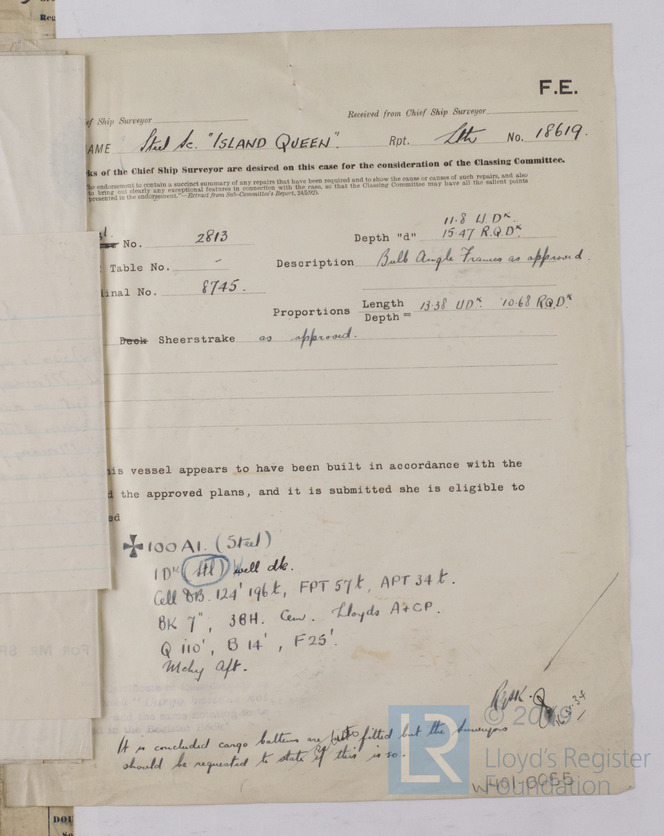 F.E.
ef Ship Surveyor Received from Chief Ship Surveyor
AME Steel Sc. "ISLAND QUEEN". Rpt. Lth No. 18619.
ks of the Chief Ship Surveyor are desired on this case for the consideration of the Classing Committee.
he endorsement to contain a succinct summary of any repairs that have been required and to show the cause or causes of such repairs, and also
to bring out clearly any exceptional features in connection with the case, so that the Classing Committee may have all the salient points
presented in the endorsement."—Extract from Sub-Committee's Report, 24/5/92).
11.8 U.Dk.
No. 2813 Depth "d" 15.47 R.Q.Dk
Table No. - Description Bulb Angle Frames as approved.
inal No. 8745.
Proportions Length/Depth = 13.38 UDk 10.68 RQ.Dk
Deck Sheerstrake as approved.
is vessel appears to have been built in accordance with the
d the approved plans, and it is submitted she is eligible to
ed
✠100A1. (Steel)
1 Dk (Stl) well dk.
Cell DB. 124' 196t, FPT 57t, APT 34t.
BK 7", 3BH. Cem. Lloyds A&CP.
Q 110', B 14', F 25'.
Mchy Aft.
FOR MR.
It is concluded cargo battens are fitted but the Surveyors
should be requested to state if this is so.
© 2019
LR
Lloyd's Register
Foundation
W461-0055
DOU